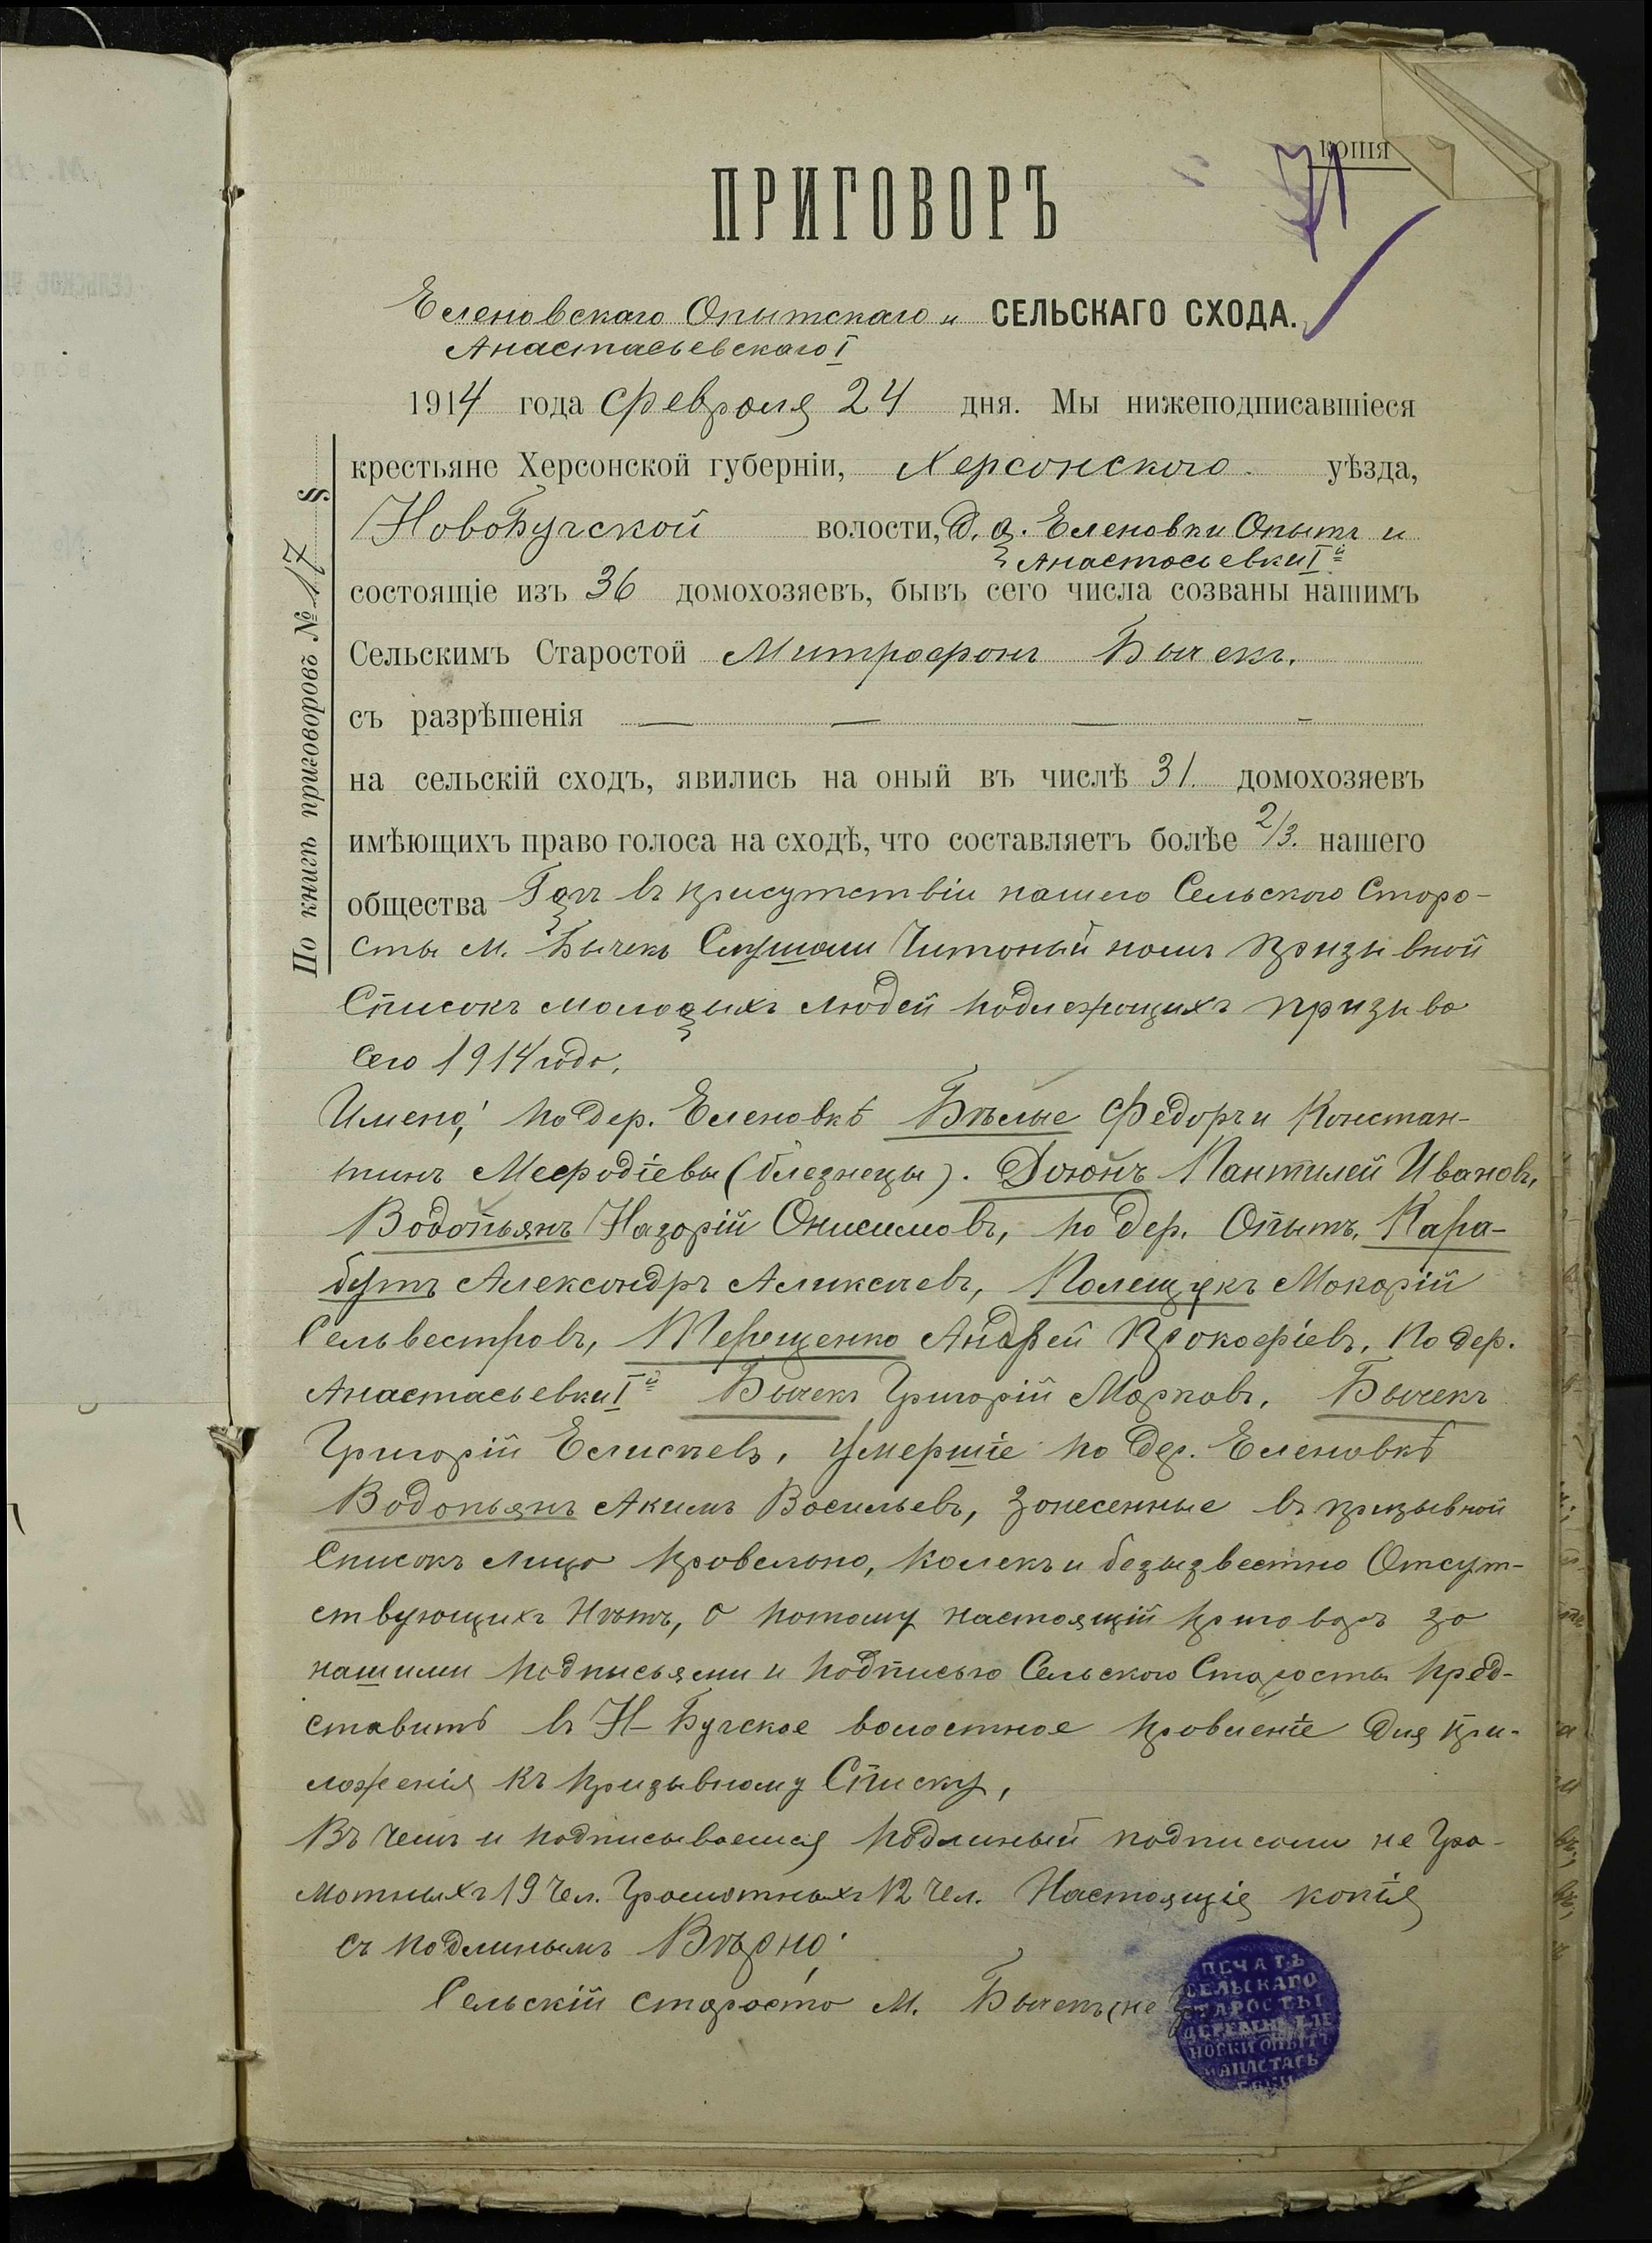 копія
71
ПРИГОВОРЪ
Еленовскаго Опытскаго и СЕЛЬСКАГО СХОДА.
Анастасьевскаго I
1914 года Февраля 24 дня. Мы нижеподписавшіеся
крестьяне Херсонской губерніи, Херсонскаго уѣзда,
НовоБугской волости, д. д. Еленовки Опытъ и
Анастасьевки I й
состоящіе изъ 36 домохозяевъ, бывъ сего числа созваны нашимъ
Сельскимъ Старостой Митрофонъ Бычекъ.
съ разрѣшенія — — — –
на сельскій сходъ, явились на оный въ числѣ 31. домохозяевъ
имѣющихъ право голоса на сходѣ, что составляетъ болѣе 2/3. нашего
общества въ присутствіи нашего Сельскаго Старо-
сты М. Бычекъ Слушали Читоный намъ призывной
Списокъ молодыхъ людей подлежощихъ призыва
сего 1914 года,
Имено; по дер. Еленовкѣ Бѣлые Федоръ и Констан-
тинъ Мефодіевы (близнецы). Доюнъ Пантилей Ивановъ,
Водопьянъ Назарій Онисимовъ, по дер. Опытъ, Кара-
бутъ Александръ Аликсѣевъ, Полещукъ Макарій
Сельвестровъ, Терещенко Андрей Прокофіевъ, по дер.
Анастасьевки I й Бычекъ Григорій Марковъ, Бычекъ
Григорій Елисѣевъ, умершіе по дер. Еленовкѣ
Водопьянъ Акимъ Васильевъ, занесенные въ призывной
Списокъ лица правельно, калекъ и безызвестно Отсут-
ствующихъ Нѣтъ, а потому настоящій приговоръ за
нашими подписьями и подписью Сельскаго Старосты пред-
ставить въ Н-Бугское волостное правленіе для при-
ложенія къ призывному Списку,
Въ чемъ и подписываемся подлиный подписали не Гра-
мотныхъ 19 чел. Грамотныхъ 12 чел. Настоящія копія
съ подлинымъ Вѣрно:
Сельскій староста М. Бычекъ (не
ПЕЧАТЬ
СЕЛЬСКАГО
СТАРОСТЫ
ДЕРЕВЕНЬ ЕЛЕ
НОВКИ ОПЫТЪ
И АНАСТАСЬ
ЕВКИ
По книгѣ приговоровъ № 17 §